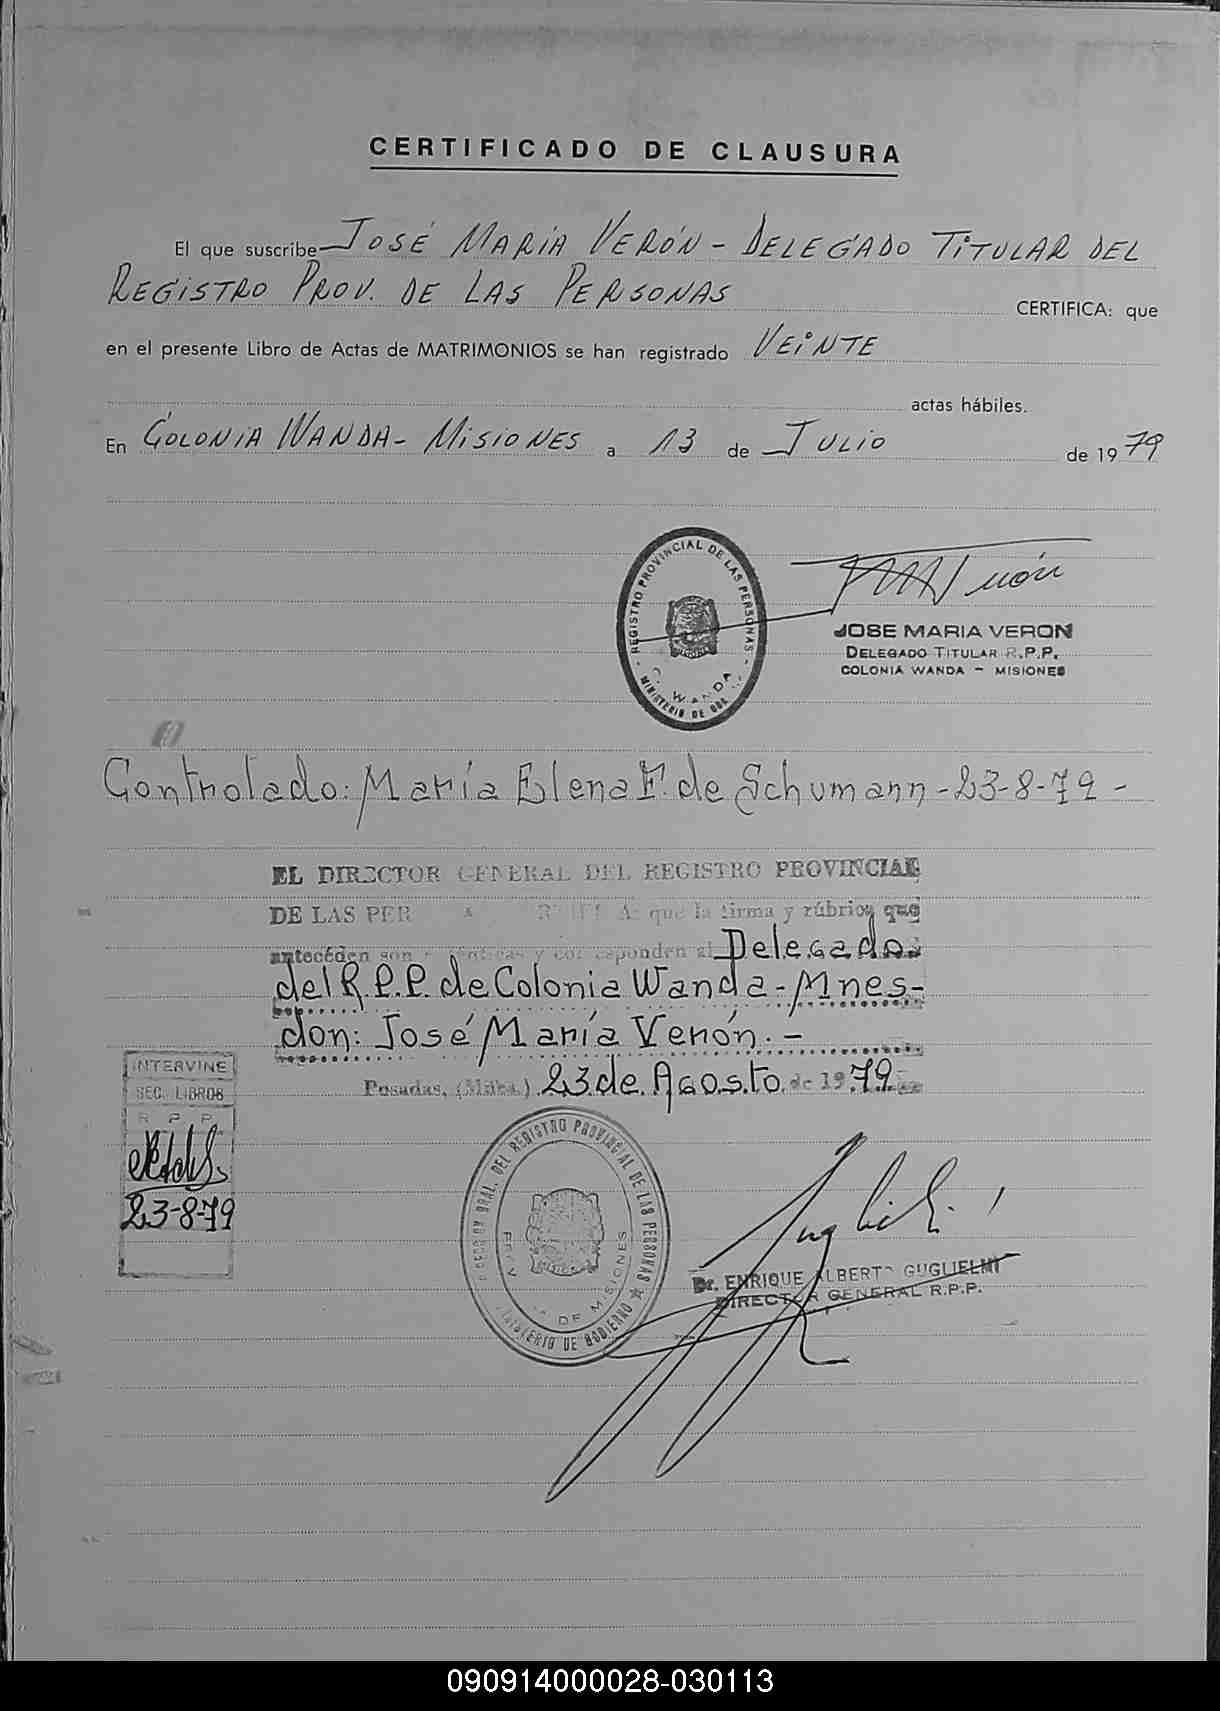 CERTIFICADO DE CLAUSURA
El que suscribe JOSÉ MARÍA VERÓN - DELEGADO TITULAR DEL
REGISTRO PROV. DE LAS PERSONAS
CERTIFICA: que
en el presente Libro de Actas de MATRIMONIOS se han registrado VEINTE
actas hábiles.
En COLONIA WANDA - MISIONES a 13 de JULIO de 1979
REGISTRO PROVINCIAL DE LAS PERSONAS
C. WANDA
MINISTERIO DE GOB
JOSE MARIA VERON
DELEGADO TITULAR R.P.P.
COLONIA WANDA - MISIONES
Controlado: María Elena F. de Schumann - 23-8-79 -
EL DIRECTOR GENERAL DEL REGISTRO PROVINCIAL
DE LAS PER que la firma y rúbrica que
antecéden son y corresponden al Delegado
del R.P.P. de Colonia Wanda - Mnes -
don: José María Verón. -
Posadas, (Mnes.) 23 de Agosto de 1979
INTERVINE
SEC. LIBROS
R P P
23-8-79
DEL REGISTRO PROVINCIAL DE LAS PERSONAS
PROV. DE MISIONES
MINISTERIO DE GOBIERNO
Dr. ENRIQUE ALBERTO GUGLIELMI
DIRECTOR GENERAL R.P.P.
090914000028-030113